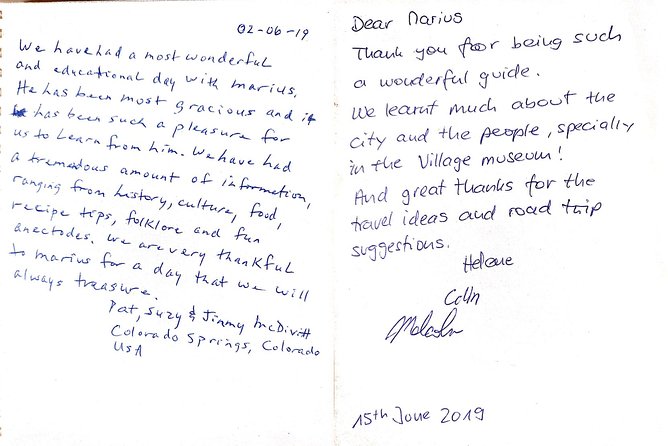 02-06-19
We have had a most wonderful
and educational day with marius.
He has been most gracious and it
has been such a pleasure for
us to Learn from him. We have had
a tremendous amount of information,
ranging from history, culture, food,
recipe tips, folklore and fun
anectodes. We are very thankful
to marius for a day that we will
always treasure.
Pat, Suzy & Jimmy McDivitt
Colorado Springs, Colorado
USA
Dear Marius
Thank you for being such
a wonderful guide.
We learnt much about the
city and the people, specially
in the Village museum!
And great thanks for the
travel ideas and road trip
suggestions.
Helene
Colin
Malcolm
15th June 2019